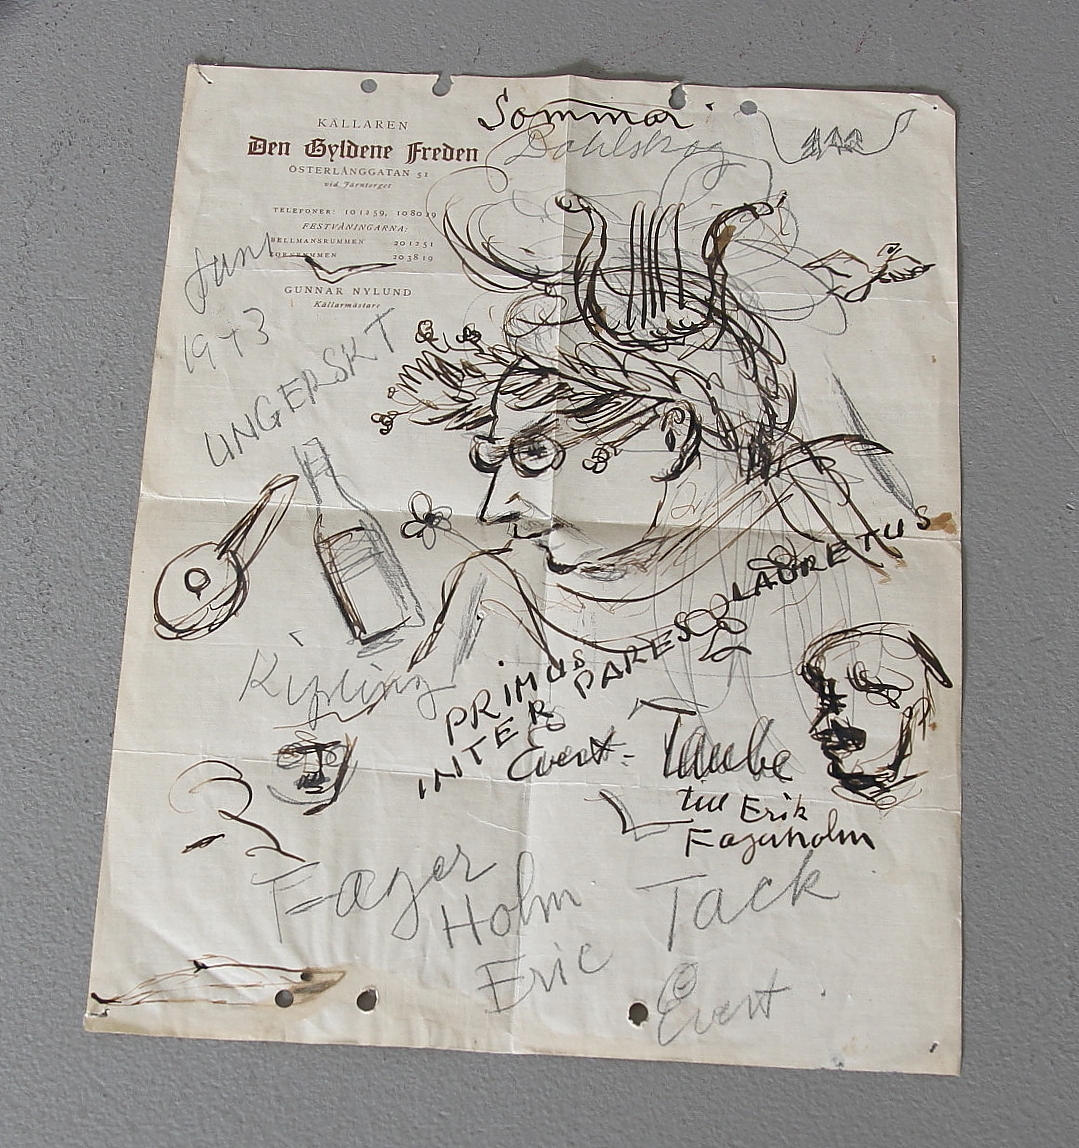 Sommar
Dahlskog
KÄLLAREN
Den Gyldene Freden
ÖSTERLÅNGGATAN 51
vid Järntorget
TELEFONER: 101259, 108019
FESTVÅNINGARNA:
BELLMANSRUMMEN 201251
203819
GUNNAR NYLUND
Källarmästare
Juni
1943
UNGERSKT
LAURETUS
Kipling
PRIMUS
INTER PARES
Evert Taube
till Erik
Fagerholm
Fager
Holm Tack
Eric
Evert